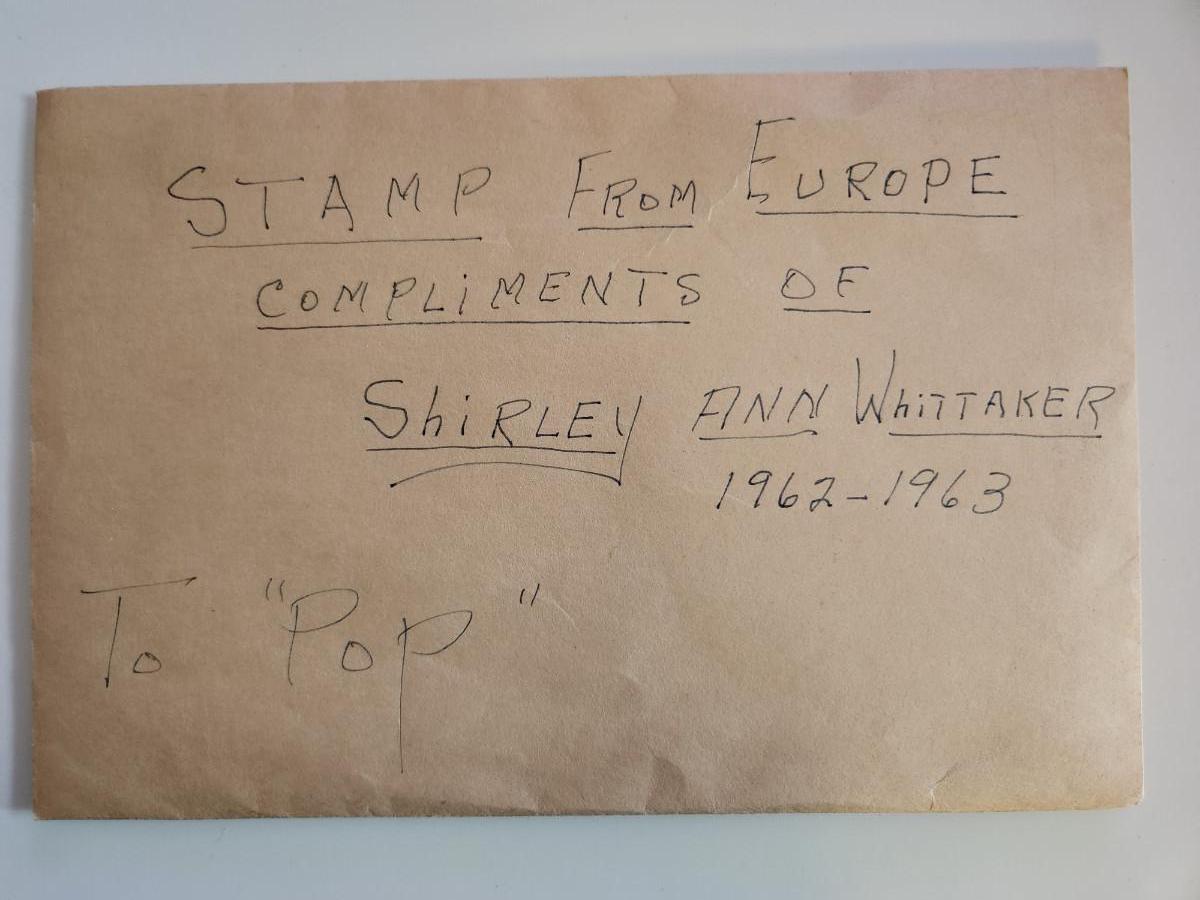 STAMP FROM EUROPE
COMPLiMENTS OF
ShiRLEY ANN WhiTTAKER
1962-1963
To "Pop"